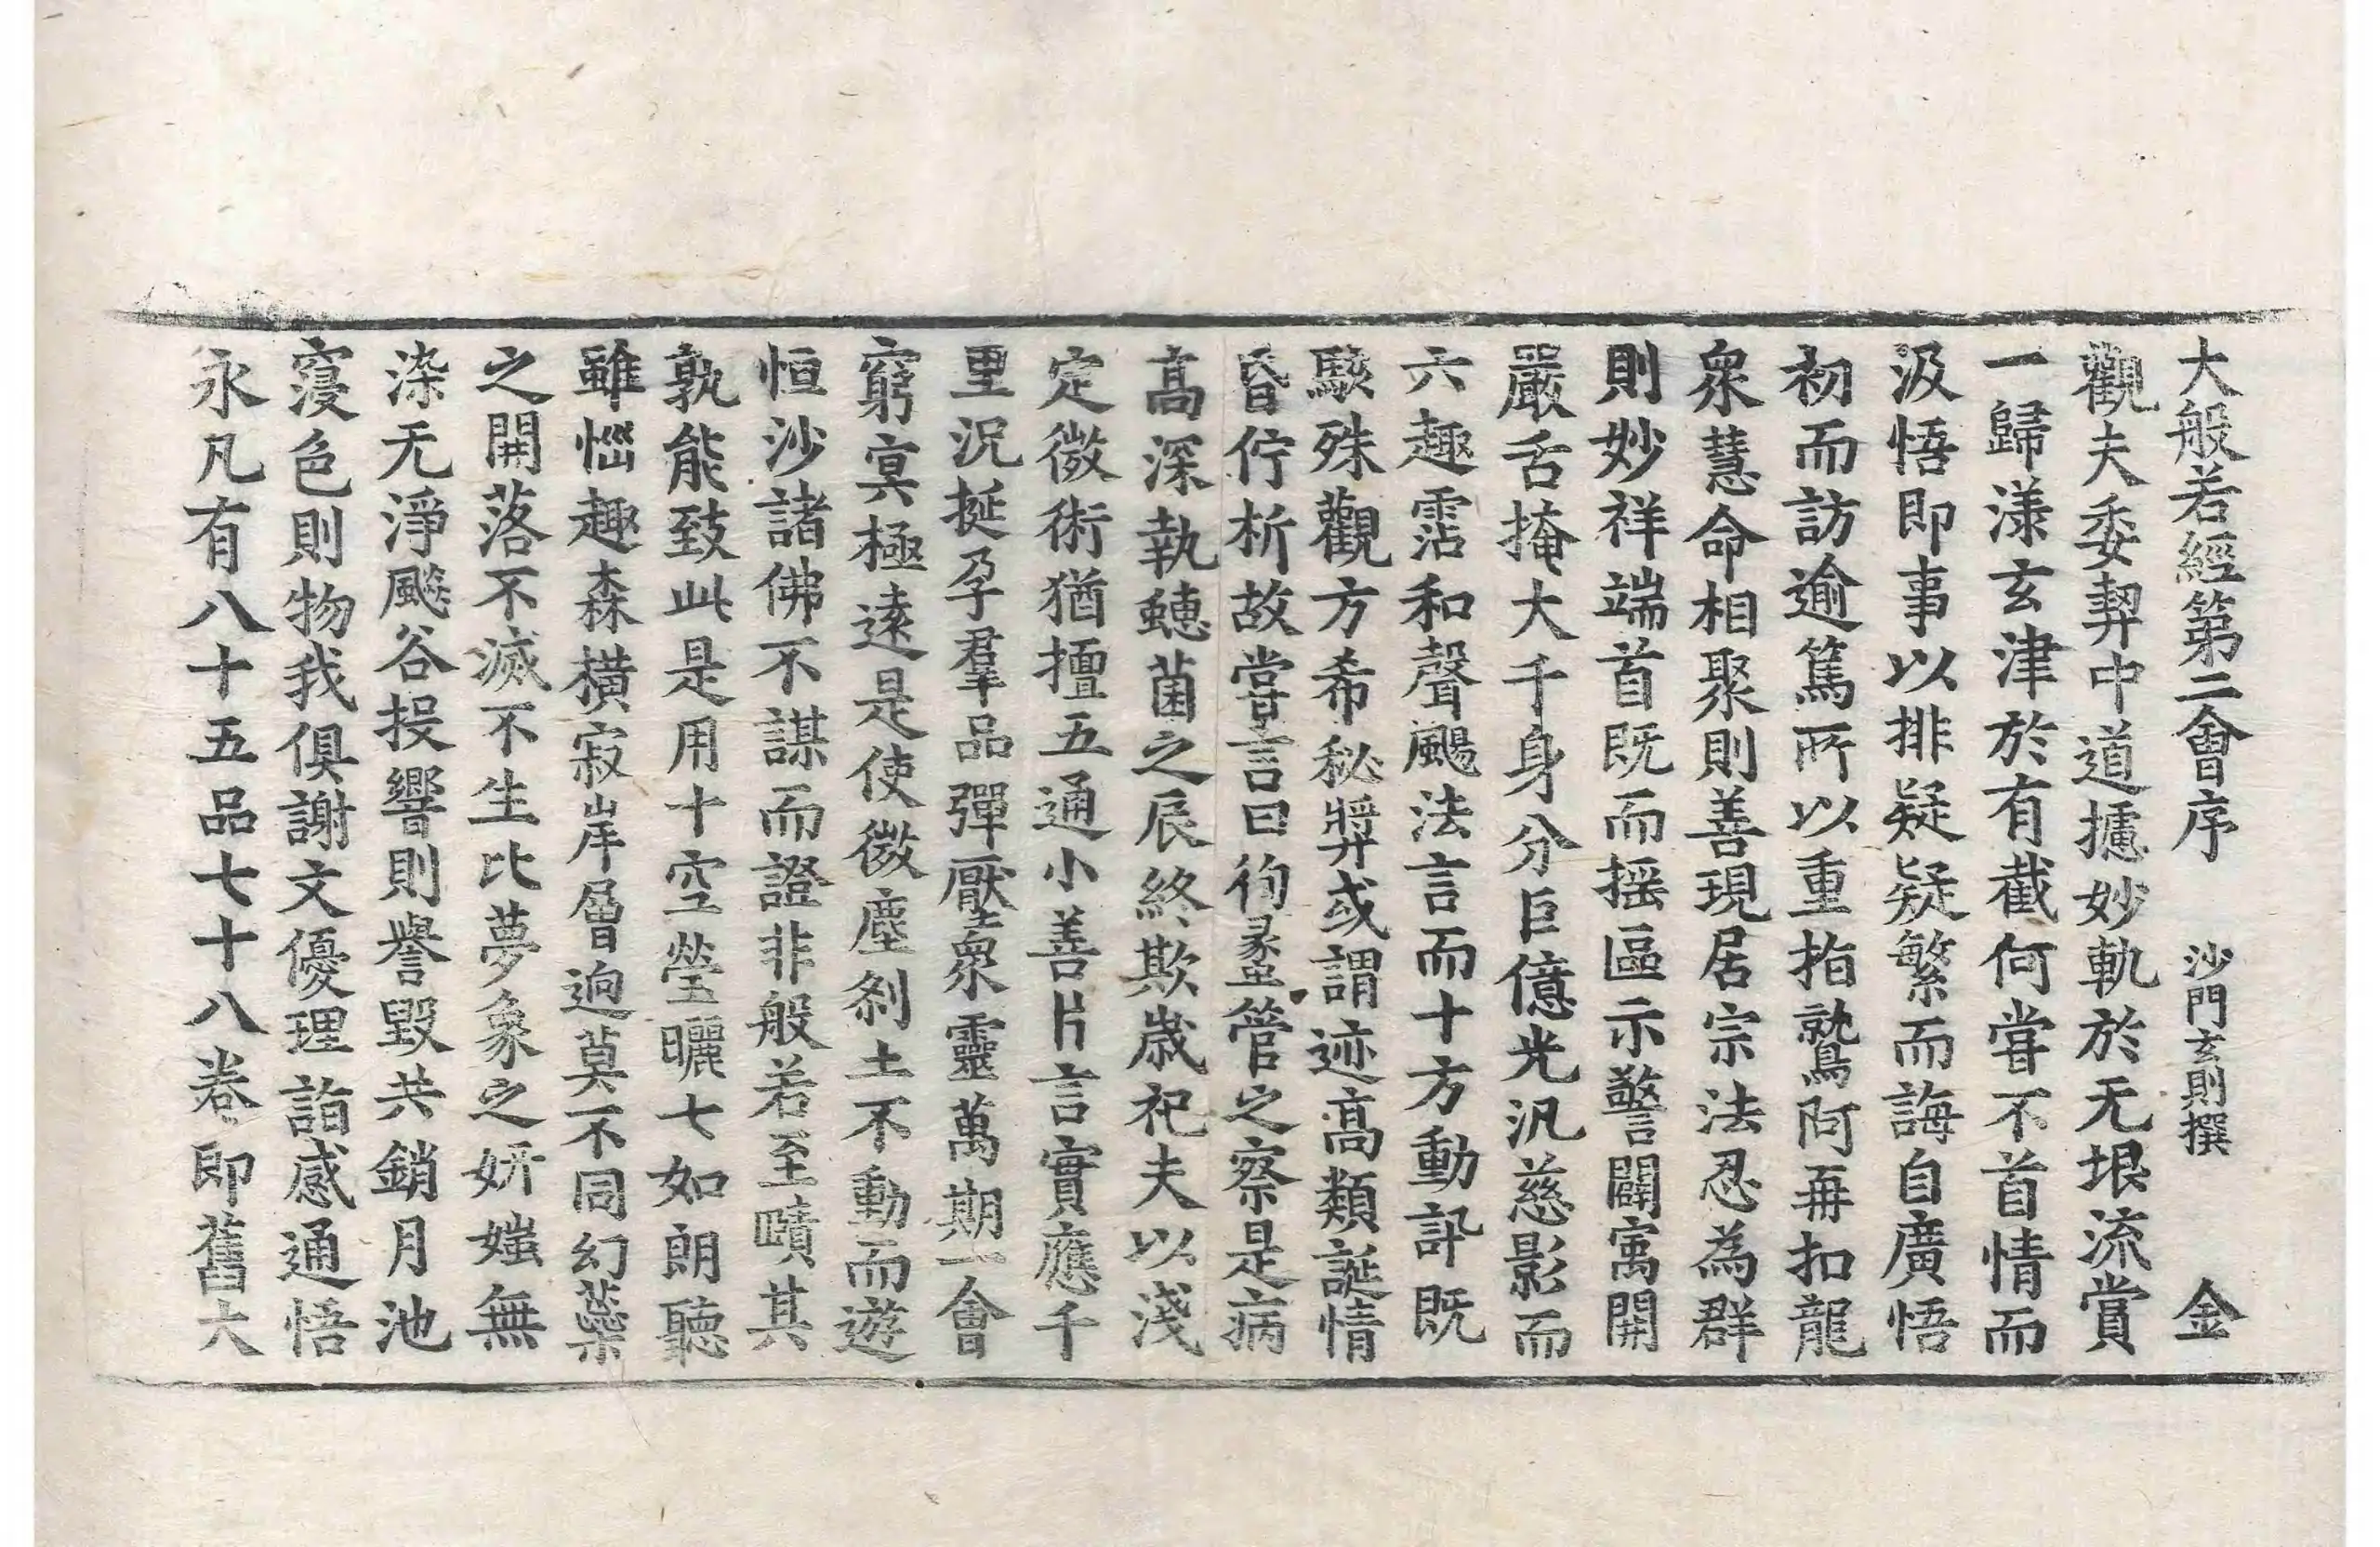 大般若經第二會序　沙門玄則撰　金
觀夫委契中道攄妙軌於无垠流賞
一歸漾玄津於有截何甞不首情而
汲悟即事以排疑疑繁而誨自廣悟
初而訪逾篤所以重指鷲阿再扣龍
衆慧命相聚則善現居宗法忍為群
則妙祥端首既而摇區示警闢㝢開
嚴舌掩大千身分巨億光汎慈影而
六趣霑和聲颺法言而十方動訊既
駭殊觀方希秘弉或謂迹髙類誕情
昏佇析故甞言曰徇蠡管之察是病
髙深執蟪菌之辰終欺歳祀夫以淺
定微術猶擅五通小善片言實應千
里況挻孕羣品彈壓衆靈萬期一會
窮㝠極遠是使微塵刹土不動而遊
恒沙諸佛不謀而證非般若至賾其
孰能致此是用十空瑩曬七如朗聽
雖惱趣森橫寂岸層逈莫不同幻蘂
之開落不滅不生比夢象之妍媸無
染无淨飈谷投響則譽毀共銷月池
寖色則物我俱謝文優理詣感通悟
永凡有八十五品七十八卷即舊大